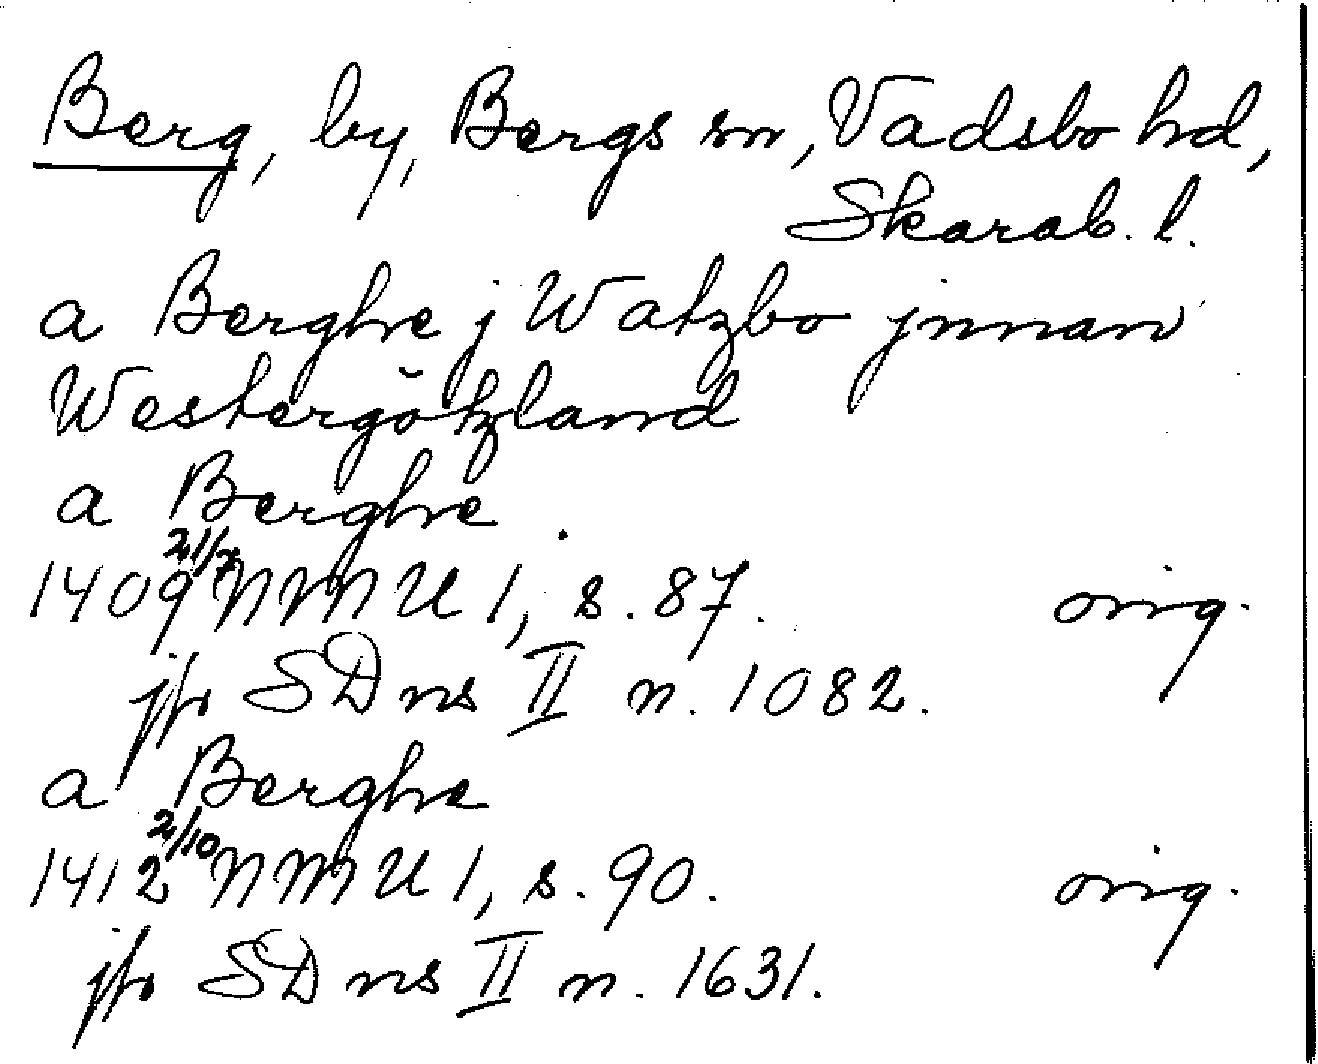 Berg, by, Bergs sn, Vadsbo hd,
Skarab. l.
a Berghe j Watzbo jnnan
Westergötzland
a Berghe
1409 21/7 NMU 1, s. 87. orig.
jfr SD ns II n. 1082.
a Berghe
1412 2/10 NMU 1, s. 90. orig.
jfr SD ns II n. 1631.